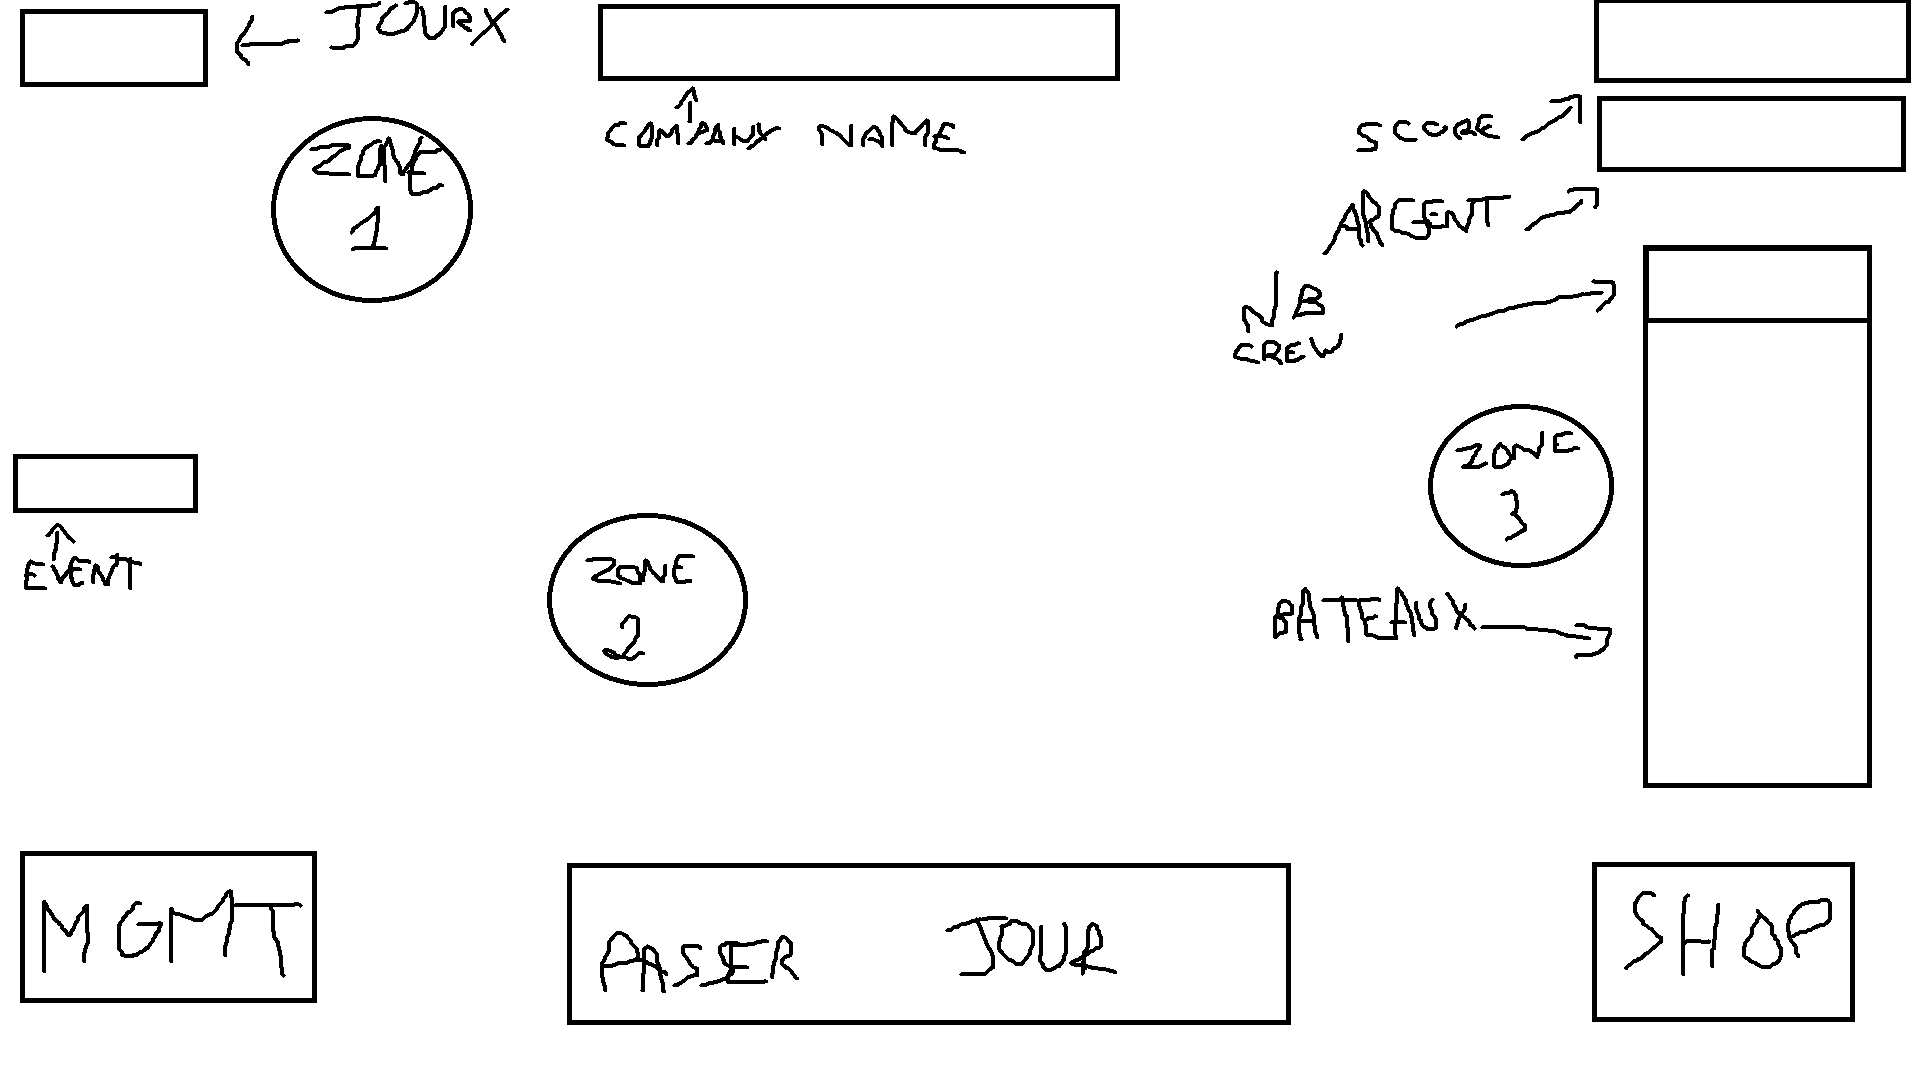 JOURX
COMPANY NAME
ZONE
1
SCORE
ARGENT
NB
CREW
ZONE
3
EVENT
ZONE
2
BATEAUX
MGMT
PASSER JOUR
SHOP